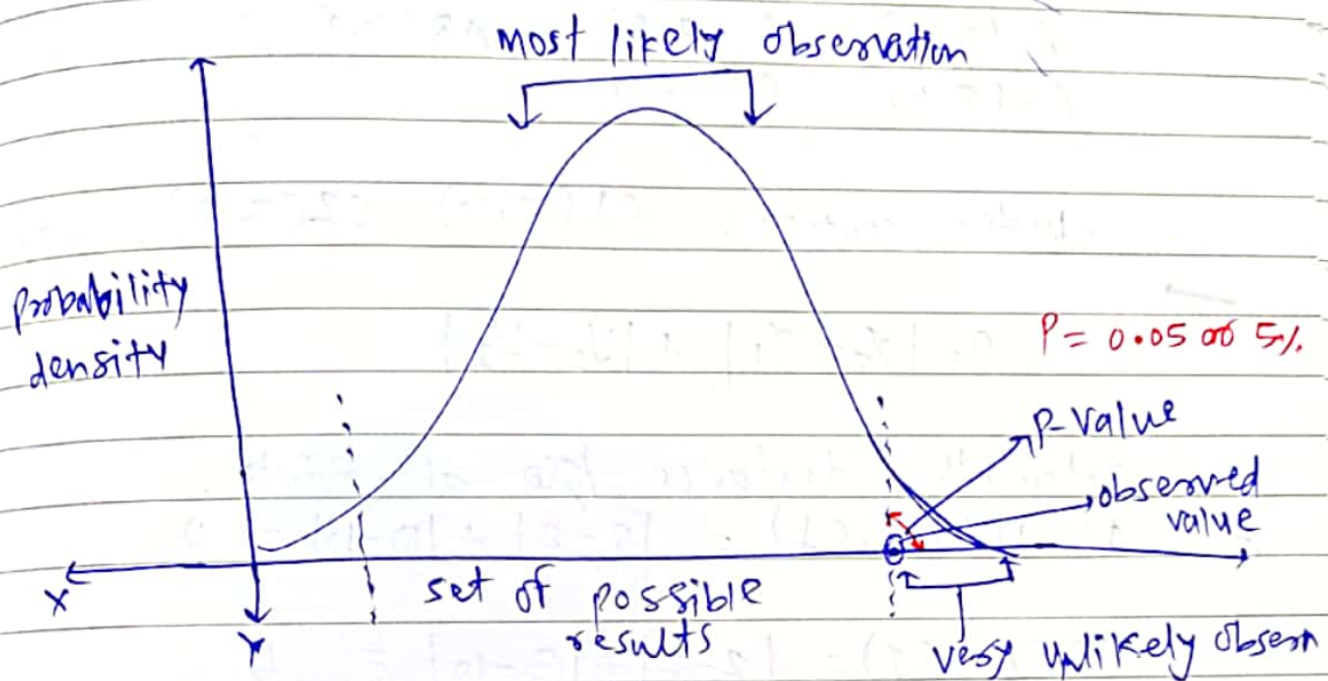 most likely observation
Probability
density
P = 0.05 or 5%
P-value
observed
value
X
set of possible
results
Y
very unlikely observn